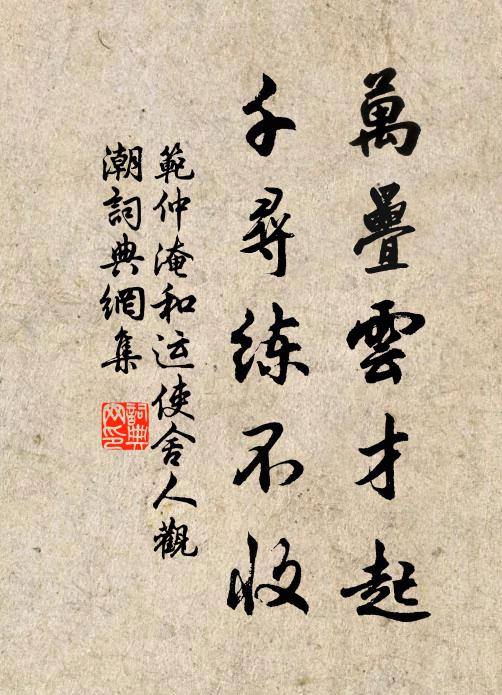 萬疊雲才起
千尋練不收
範仲淹和运使舍人觀
潮詞典網集
詞典
网印